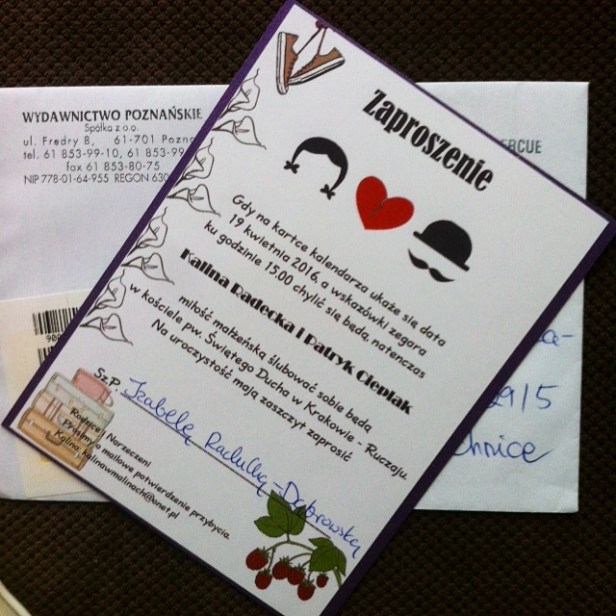 WYDAWNICTWO POZNAŃSKIE
Spółka z o.o.
ul. Fredry 8, 61-701 Pozna
tel. 61 853-99-10, 61 853-99
fax 61 853-80-75
NIP 778-01-64-955 REGON 630
ERCUE
Zaproszenie
Gdy na kartce kalendarza ukaże się data
19 kwietnia 2016, a wskazówki zegara
ku godzinie 15.00 chylić się będą, natenczas
Kalina Radecka i Patryk Cieplak
miłość małżeńską ślubować sobie będą
w kościele pw. Świętego Ducha w Krakowie - Ruczaju.
Na uroczystość mają zaszczyt zaprosić
Sz.P. Izabelę Radulkę-Dąbrowską
Rodzice i Narzeczeni
Prosimy o mailowe potwierdzenie przybycia.
Kalina: kalinawmalinach@onet.pl
29/5
chnice